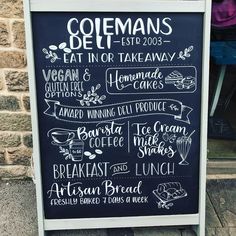 COLEMANS
DELI - ESTD 2003 -
EAT IN OR TAKEAWAY
VEGAN &
GLUTEN FREE
OPTIONS
Homemade
CAKES
AWARD WINNING DELI PRODUCE
Barista
COFFEE
Ice Cream
Milk
Shakes
BREAKFAST AND LUNCH
Artisan Bread
FRESHLY BAKED 7 DAYS A WEEK